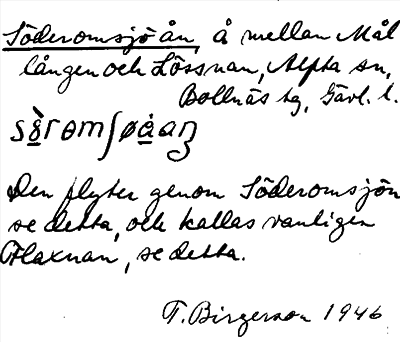 Söderomsjöån, å mellan Mål
lången och Lössnan, Alfta sn,
Bollnäs tg, Gävl. l.
Den flyter genom Söderomsjön
se detta, och kallas vanligen
Flaxnan, se detta.
T. Birgerson 1946